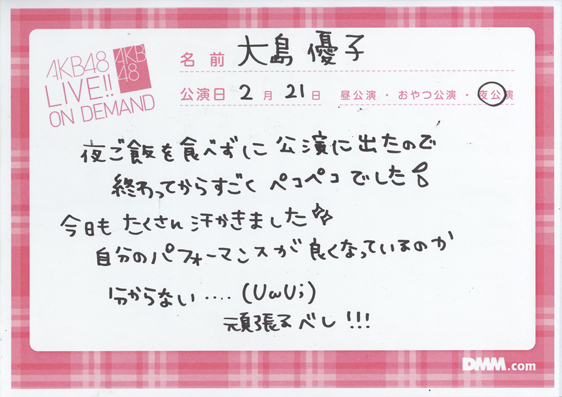 AKB48
LIVE!!
ON DEMAND
AKB
48
名前 大島 優子
公演日 2月21日 昼公演・おやつ公演・夜公演
夜ご飯を食べずに公演に出たので
終わってからすごくペコペコでした
今日もたくさん汗かきました
自分のパフォーマンスが良くなっているのか
分からない‥‥(UωU;)
頑張るべし!!!
DMM.com